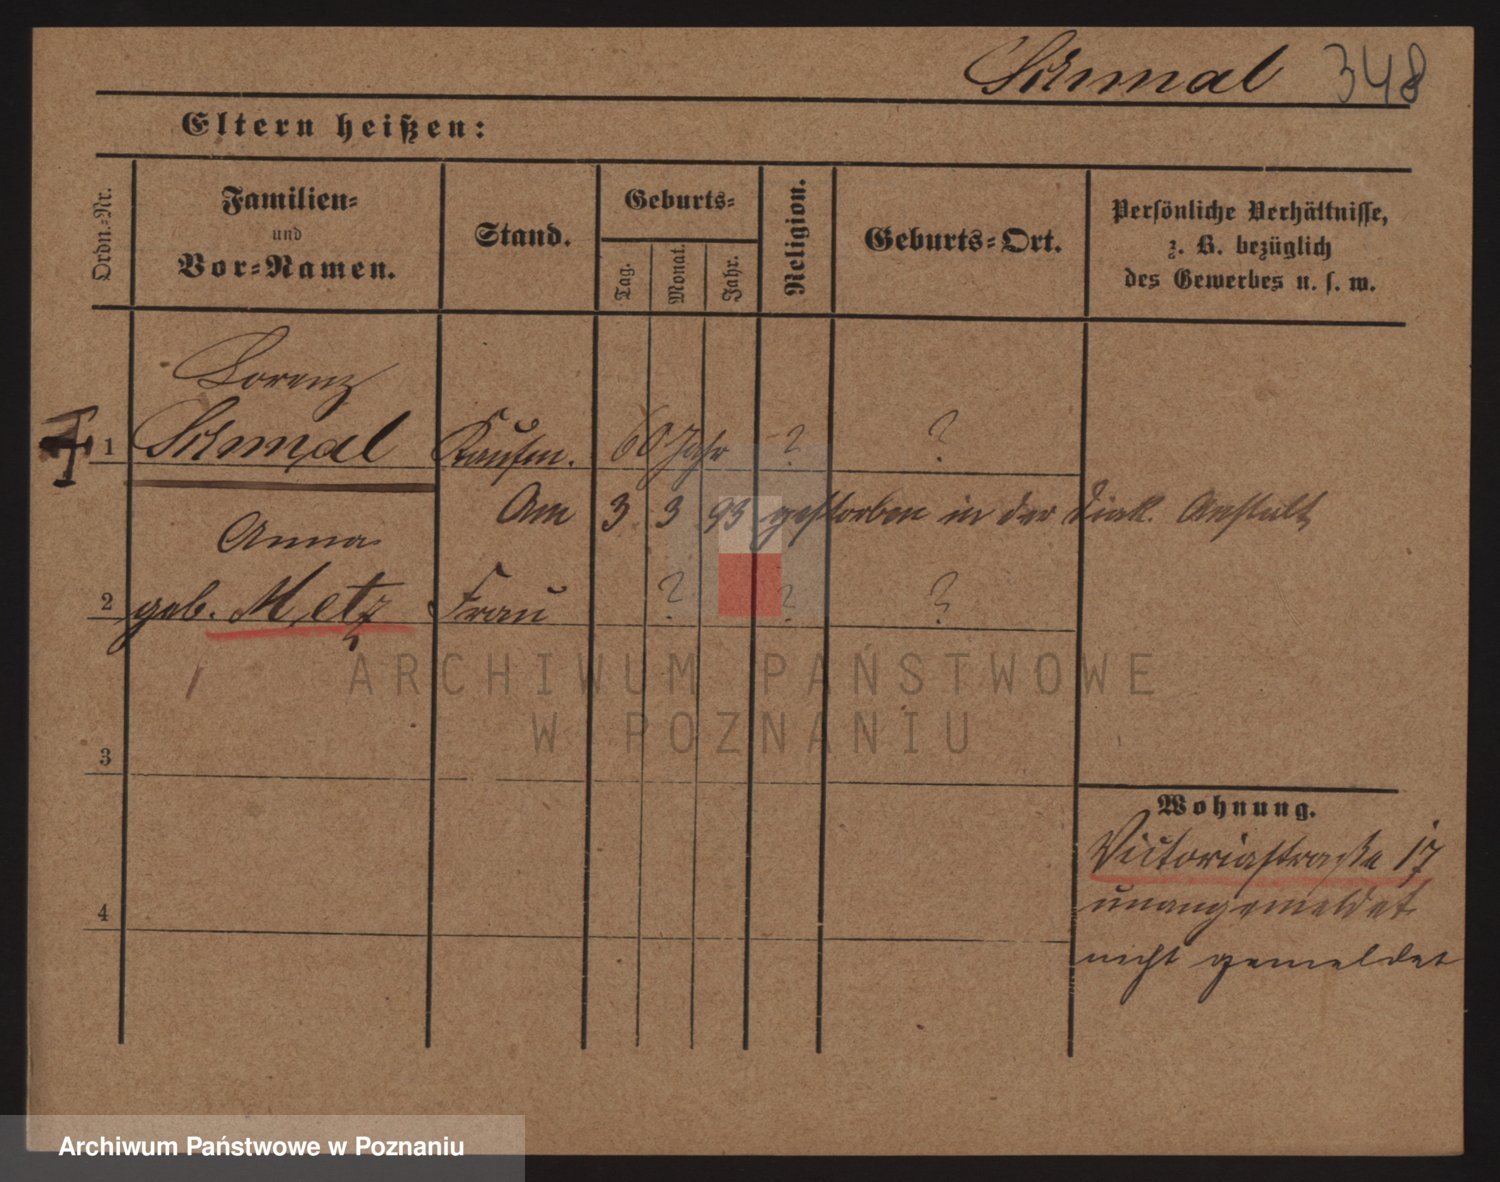 Schmal 348
Eltern heißen:
Ordn.-Nr.
Familien-
und
Vor-Namen.
Stand.
Geburts-
Tag.
Monat.
Jahr.
Religion.
Geburts-Ort.
Persönliche Verhältnisse,
z. B. bezüglich
des Gewerbes u. s. w.
Lorenz
1 Schmal Kaufm. 60 Jahr ? ?
Am 3 3 93 gestorben in der Diak. Anstalt
Anna
2 geb. Metz Frau ? ? ?
ARCHIWUM PAŃSTWOWE
W POZNANIU
3
Wohnung.
Victoriastraße 17
unangemeldet
4
nicht gemeldet
Archiwum Państwowe w Poznaniu